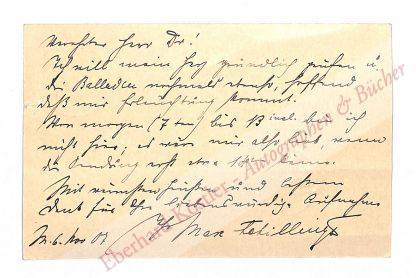 Verehrter Herr Dr!
Ich will mein Herz gründlich prüfen u.
die Balladen nochmals hoffend
daß mir Erleuchtung kommt.
Von morgen (7ten) bis 13 incl. bin ich
nicht hier; es wär mir also lieb, wenn
die Sendung erst etwa
Mit und bestem
Dank für Ihre liebenswürdige Aufnahme
Ihr Max Schillings
M. 6. Nov 01
Eberhard Köstler - Autographen & Bücher